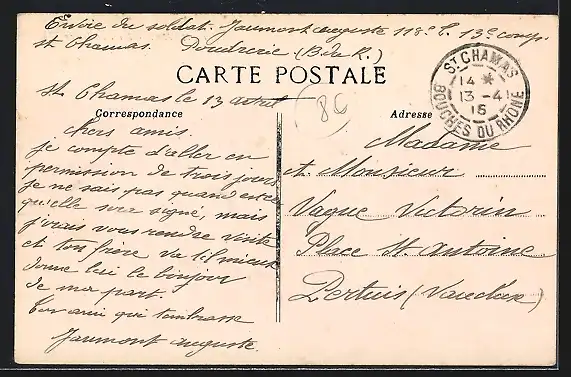 Envoie du soldat. Jaumont auguste 118e t. 13e comp.
St Chamas. Poudrerie (B. du R.)
CARTE POSTALE
ST CHAMAS
14 *
13 -4
16
BOUCHES DU RHÔNE
86
Correspondance
St Chamas le 13 avril
chers amis.
je compte d'aller en
permission de trois jours
je ne sais pas quand est ce
qu'elle sera signé, mais
j'irais vous rendre visite
et ton frère va t'il mieux
donne lui le bonjour
de ma part.
Ton ami qui t'embrasse
Jaumont auguste.
Adresse
Madame
et Monsieur
Vague Victorin
Place St Antoine
Pertuis (Vaucluse)